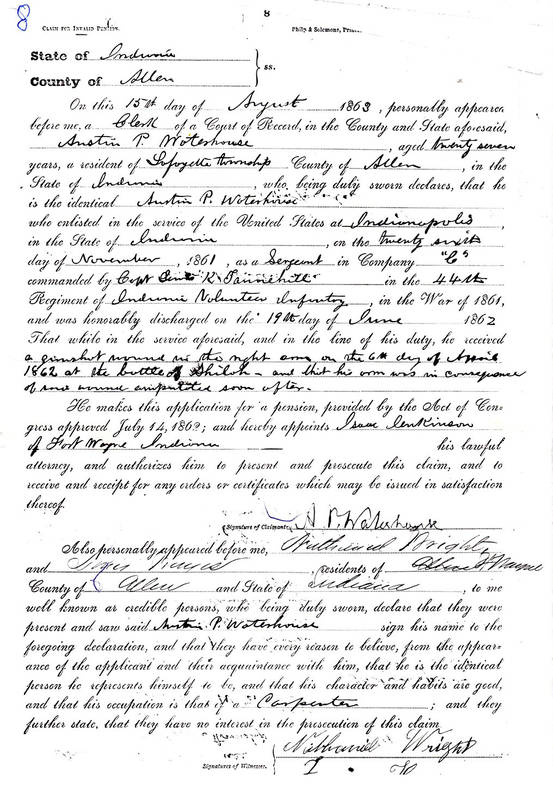 8
8
CLAIM FOR INVALID PENSION.
Philp & Solomons, 
State of Indiana
County of Allen } ss.
On this 15th day of August 1863, personally appeared
before me, a Clerk of a Court of Record, in the County and State aforesaid,
Austin P. Waterhouse, aged twenty seven
years, a resident of Lafayette township County of Allen, in the
State of Indiana, who, being duly sworn declares, that he
is the identical Austin P. Waterhouse
who enlisted in the service of the United States at Indianapolis,
in the State of Indiana, on the twenty sixth
day of November, 1861, as a Sergeant in Company "C"
commanded by Capt K. Tannehill in the 44th
Regiment of Indiana Volunteer Infantry, in the War of 1861,
and was honorably discharged on the 19th day of June 1862
That while in the service aforesaid, and in the line of his duty, he received
a gunshot wound in the right arm on the 6th day of April
1862 at the battle of Shiloh - and that his arm was in consequence
of said wound amputated soon after.
He makes this application for a pension, provided by the Act of Con-
gress approved July 14, 1862; and hereby appoints Isaac Jenkinson
of Fort Wayne Indiana his lawful
attorney, and authorizes him to present and prosecute this claim, and to
receive and receipt for any orders or certificates which may be issued in satisfaction
thereof.
Signature of Claimant: A. P. Waterhouse
Also personally appeared before me, Nathaniel Wright
and , residents of 
County of Allen and State of Indiana, to me
well known as credible persons, who being duly sworn, declare that they were
present and saw said Austin P. Waterhouse sign his name to the
foregoing declaration, and that they have every reason to believe, from the appear-
ance of the applicant and their acquaintance with him, that he is the identical
person he represents himself to be, and that his character and habits are good,
and that his occupation is that of a Carpenter; and they
further state, that they have no interest in the prosecution of this claim
Nathaniel Wright
Signatures of Witnesses.